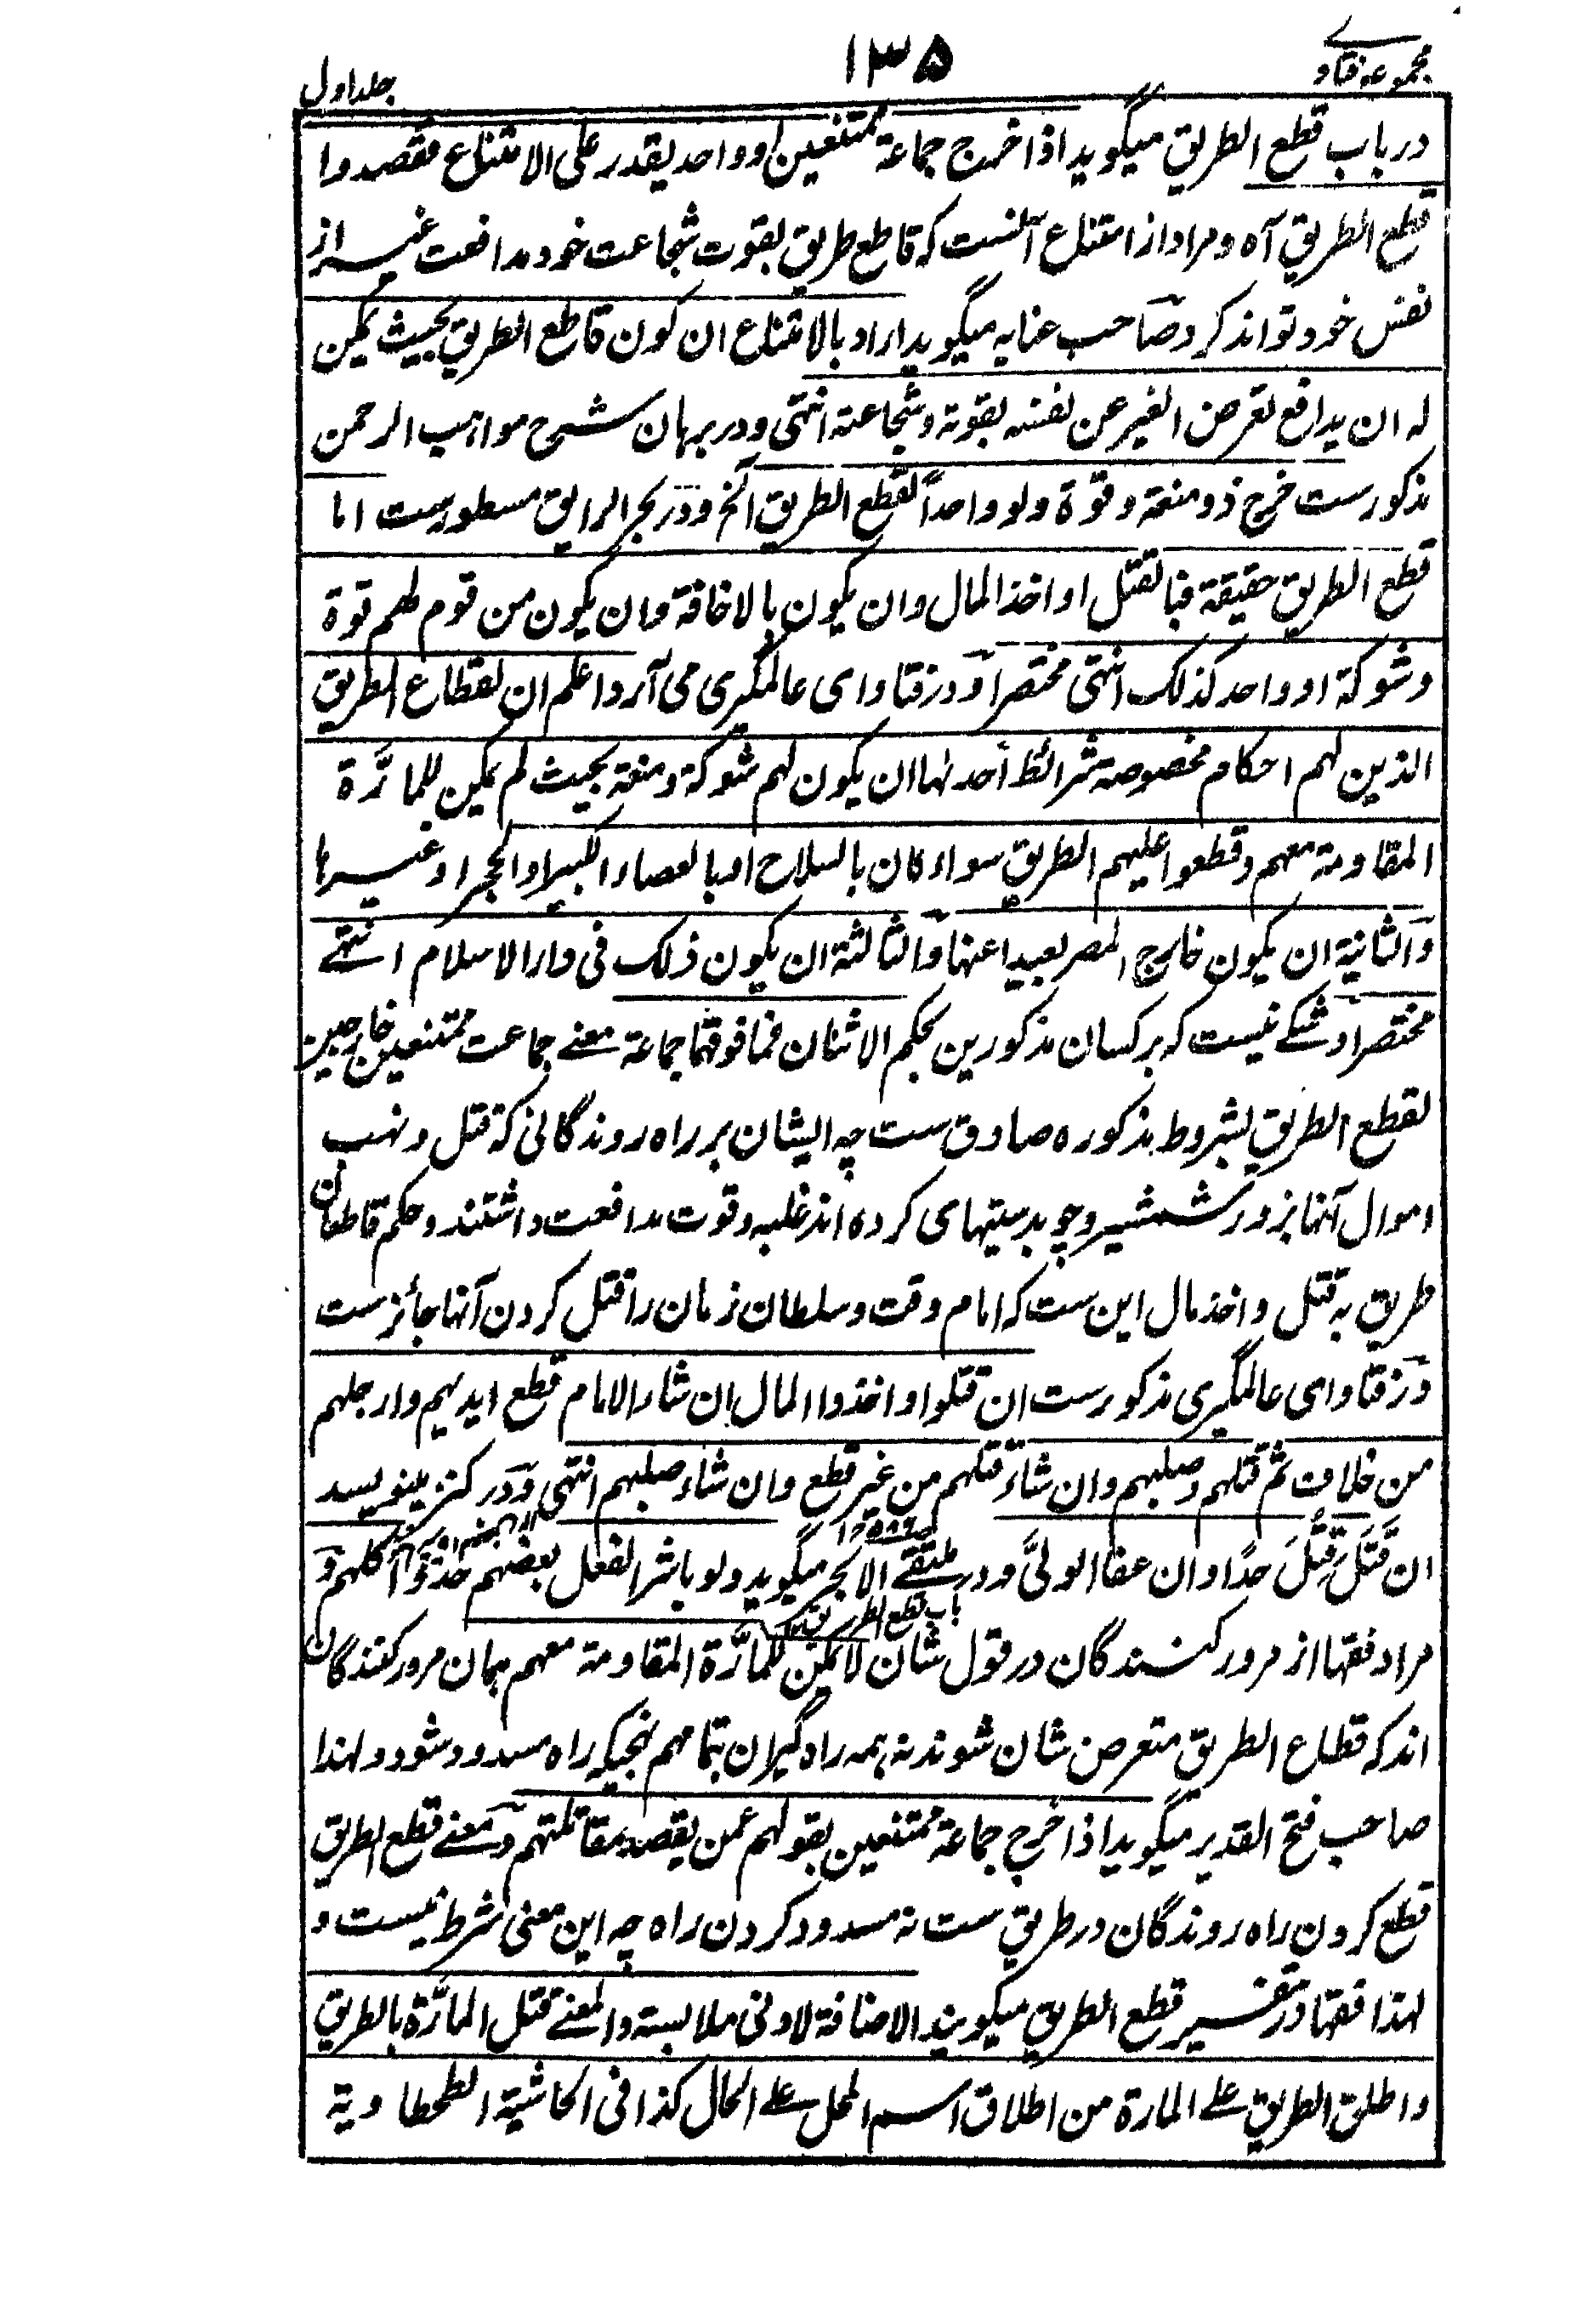 مجموعه فتاوے
۱۳۵
جلد اول
در باب قطع الطریق میگوید اذا خرج جماعة ممتنعین او واحد یقدر علی الامتناع فقصدوا
قطع الطریق آه و مراد از امتناع آنست که قاطع طریق بقوت شجاعت خود مدافعت غیر از
نفس خود تواند کرد و صاحب عنایه میگوید اراد بالامتناع ان کون قاطع الطریق بحیث یمکن
له ان یدافع تعرض الغیر عن نفسه بقوته و شجاعته انتهی و در برهان شرح مواهب الرحمن
مذکورست خرج ذو منعة و قوة ولو واحداً لقطع الطریق الخ و در بحر الرایق مسطورست اما
قطع الطریق حقیقة فبالقتل او اخذ المال وان یکون بالاخافة وان یکون من قوم لهم قوة
و شوکة او واحد کذلک انتهی مختصراً و در فتاوای عالمگیری می آرد اعلم ان لقطاع الطریق
الذین لهم احکام مخصوصة شرائط أحدلها ان یکون لهم شوکة و منعة بحیث لم یمکن للمارَّة
المقاومة معهم و قطعوا علیهم الطریق سواء کان بالسلاح او بالعصاء الکبیر او الحجر او غیرها
والثانیة ان یکون خارج المصر بعیدا عنها والثالثة ان یکون ذلک فی دار الاسلام انتهے
مختصراً و شکے نیست که بر کسان مذکورین بحکم الاثنان فما فوقهما جماعة معنے جماعت ممتنعین خارجین
لقطع الطریق بشروط مذکوره صادق ست چه ایشان بر راه روندگانی که قتل و نهب
اموال آنها بزور شمشیر و چوبدستیهای کرده اند غلبه و قوت مدافعت داشتند و حکم قاطعان
طریق به قتل و اخذ مال این ست که امام وقت و سلطان زمان را قتل کردن آنها جائزست
در فتاوای عالمگیری مذکورست ان قتلوا و اخذوا المال ان شاء الامام قطع ایدیهم وارجلهم
من خلاف ثم قتلهم و صلبهم وان شاء قتلهم من غیر قطع وان شاء صلبهم انتهی و در کنز مینویسد
ان قَتَلَ قُتِلَ حدًا وان عفا الولیُّ و در ملتقے الابحر میگوید ولو باشر الفعل بعضهم حُدُّوا کلهم و
باب قطع الطریق
مراد فقها از مرور کنندگان در قول شان لا یمکن للمارَّة المقاومة معهم همان مرور کنندگان
اند که قطاع الطریق متعرض شان شوند نه همه راه گیران بتمامهم بنهجیکه راه مسدود شود و لهذا
صاحب فتح القدیر میگوید اذا خرج جماعة ممتنعین بقولهم عمن یقصد مقاتلتهم و معنے قطع الطریق
قطع کردن راه روندگان در طریق ست نه مسدود کردن راه چه این معنی شرط نیست و
لهذا فقها در تفسیر قطع الطریق میگویند الاضافة لادنی ملابسة والمعنے قتل المارَّة بالطریق
و اطلق الطریق علے المارة من اطلاق اسم المحل علے الحال کذا فی الحاشیة الطحطاویة